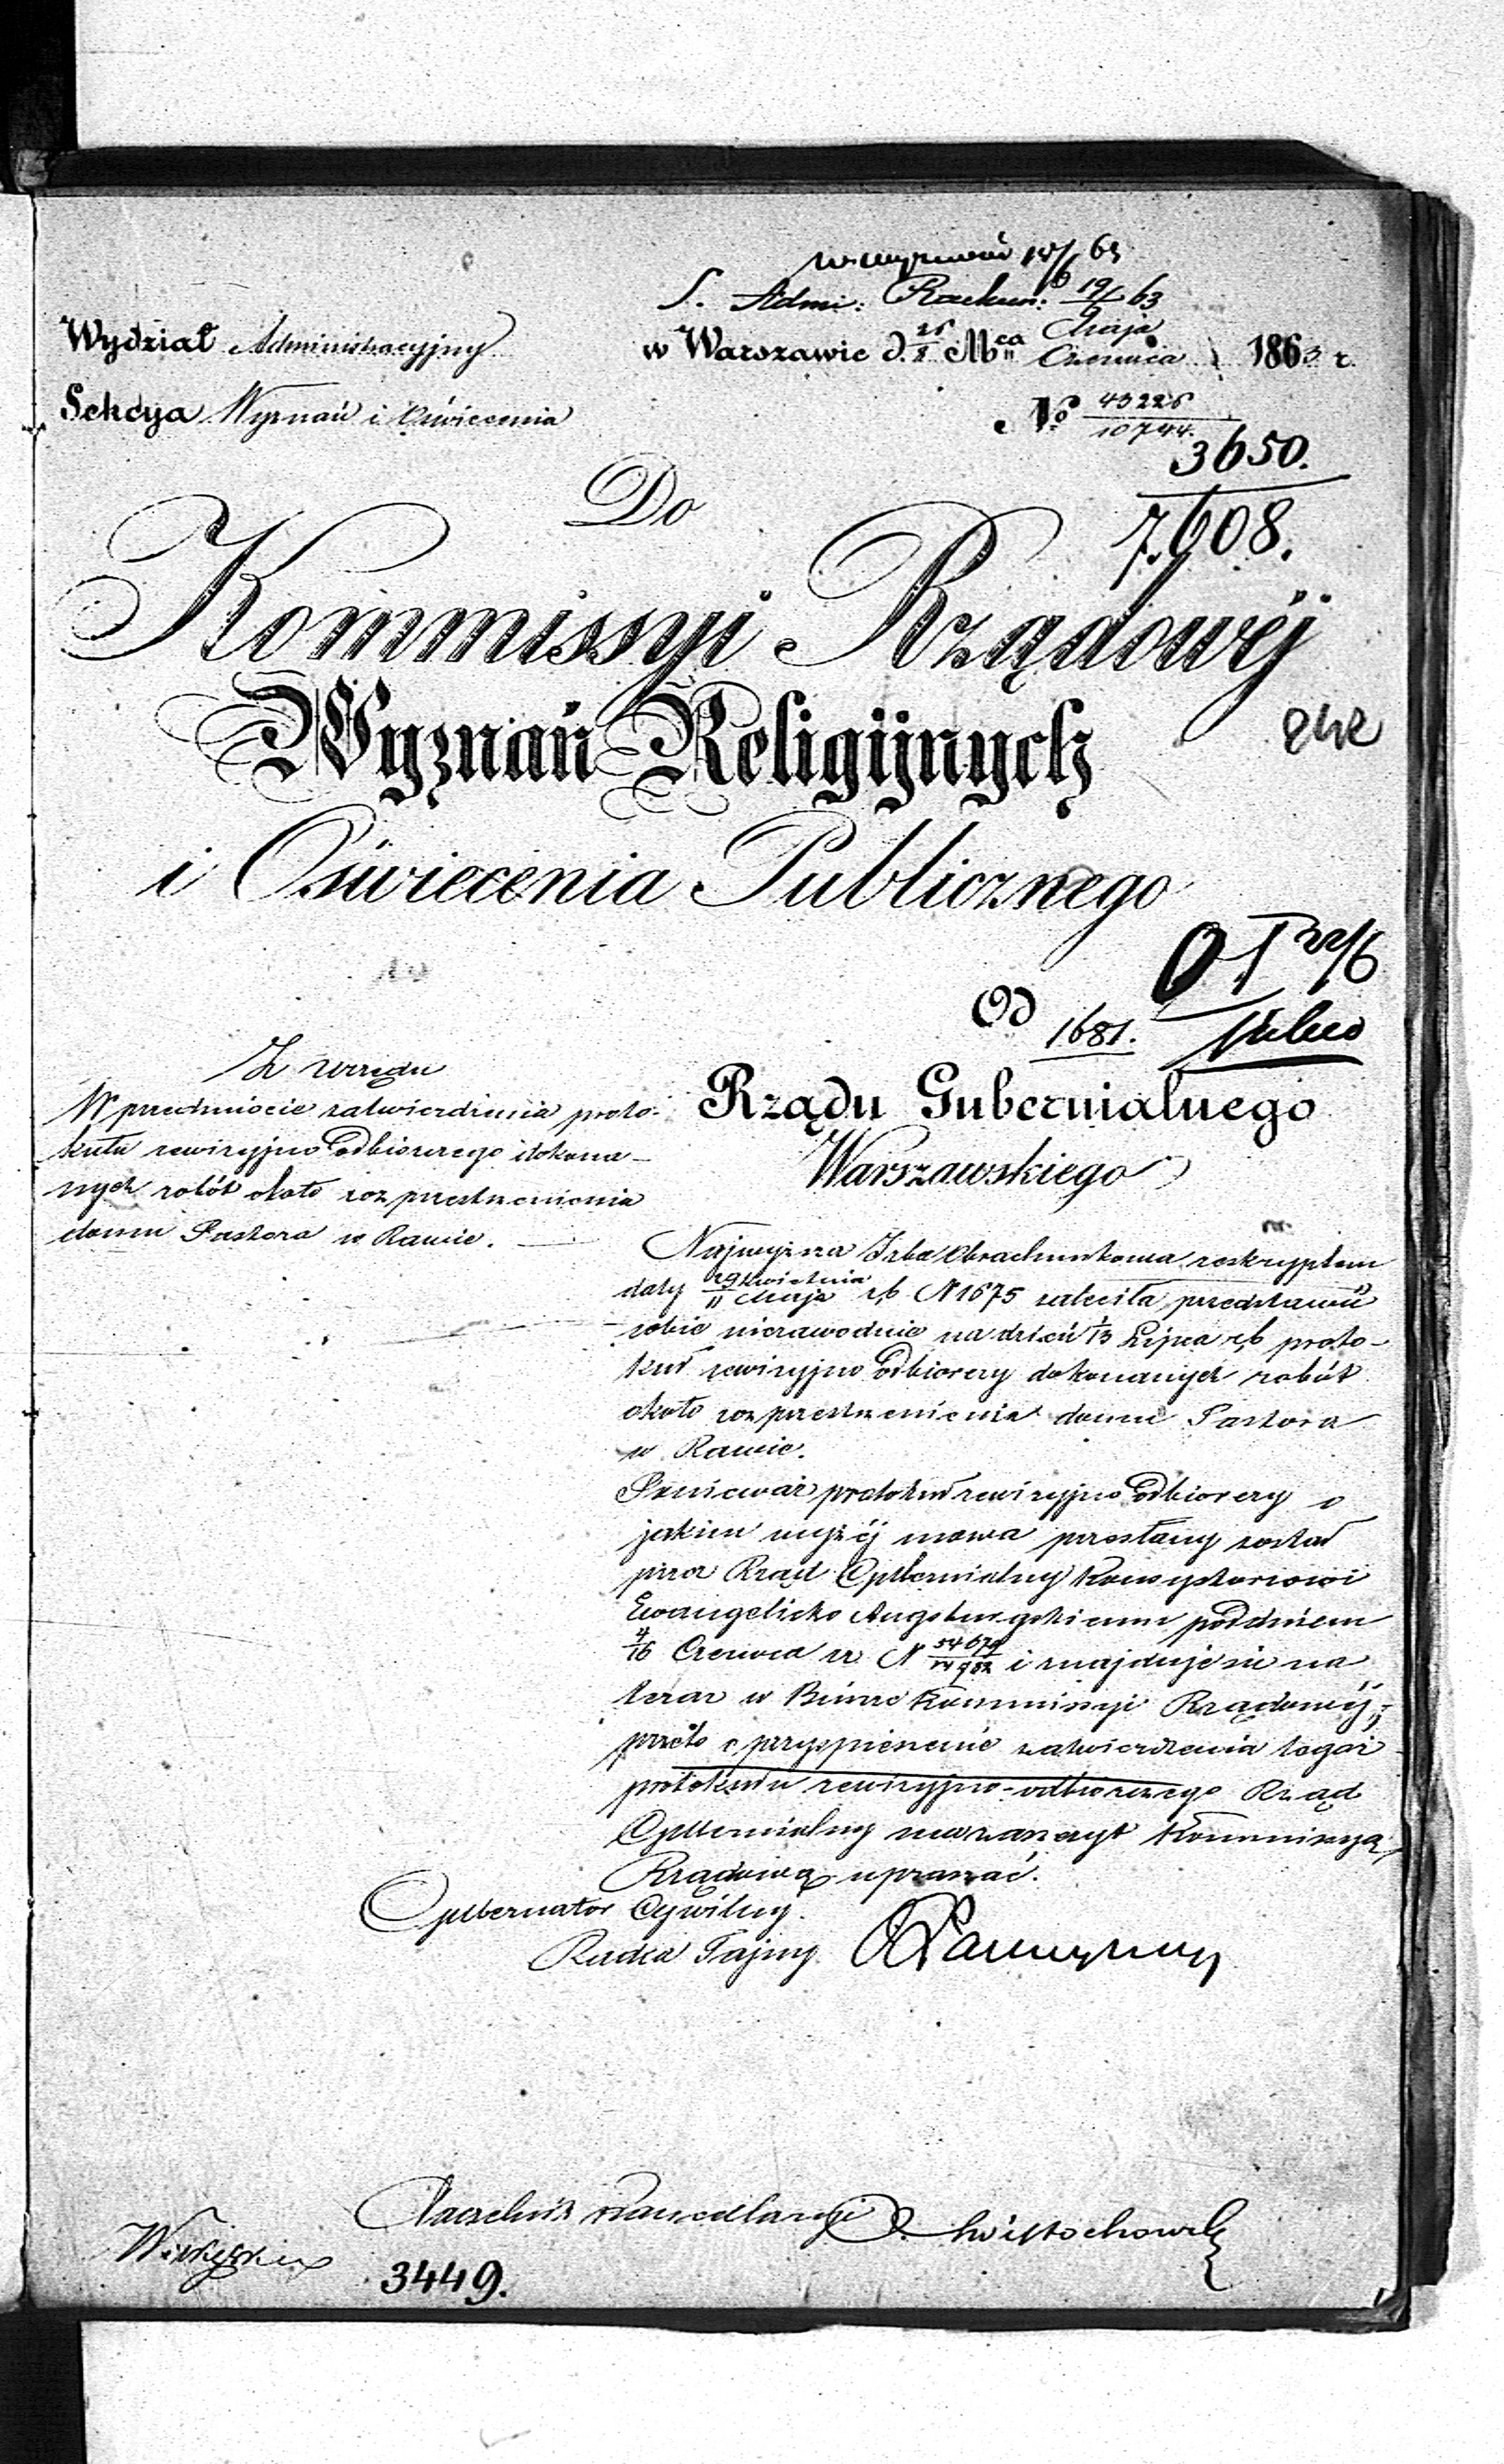 S. Adm: Rachun: 19/6 63
Wydział Administracyjny
w Warszawie d. Mca Maja Czerwca 1863 r.
Sekcya Wyznań i Oświecenia
No 43226
10744.
3650.
7.608.
Do
Kommissyi Rządowéj
Wyznań Religijnych
i Oświecenia Publicznego
Od
1681.
Rządu Gubernialnego
Warszawskiego
Z Urzędu
W przedmiocie zatwierdzenia proto-
kułu rewizyjno Odbiorczego dokona-
nych robót około rozprzestrzenienia
domu Pastora w Rawie.
Najwyższa Izba Obrachunkowa reskryptem
daty 29 Kwietnia / 11 Maja r.b. N 1675 zaleciła przedstawić
sobie niezawodnie na dzień 1/13 Lipca r.b. proto-
kuł rewizyjno Odbiorczy dokonanych robót
około rozprzestrzenienia domu Pastora
w Rawie.
Ponieważ protokuł rewizyjno Odbiorczy o
jakim wyżéj mowa przesłany został
przez Rząd Gubernialny Konsystorzowi
Ewangelicko Augsburgskiemu pod dniem
4/16 Czerwca zr. N 54679 i znajduje się na
teraz w Biurze Kommissyi Rządowéj,
przeto o przyspieszenie zatwierdzenia togoż
protokułu rewizyjno-odbiorczego Rząd
Gubernialny ma zaszczyt Kommissyą
Rządową upraszać.
Gubernator Cywilny.
Radca Tajny
Naczelnik Kancellaryi
3449.